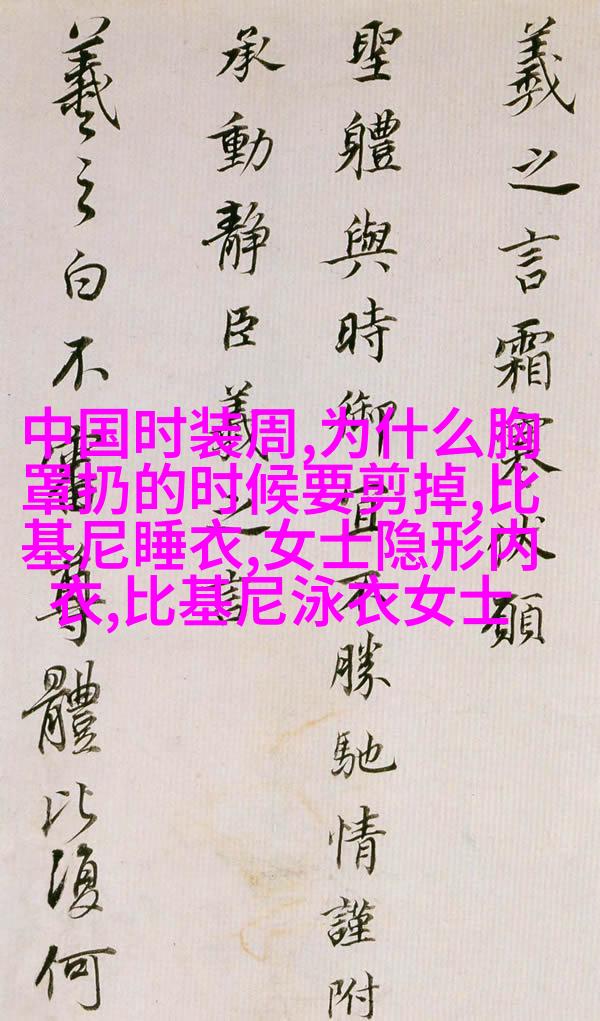 羲之言霜寒伏願
聖體與時御宜不勝馳情謹附
承動靜臣羲之言
羲之白不審尊體比復何
中国时装周,为什么胸
罩扔的时候要剪掉,比
基尼睡衣,女士隐形内
衣,比基尼泳衣女士